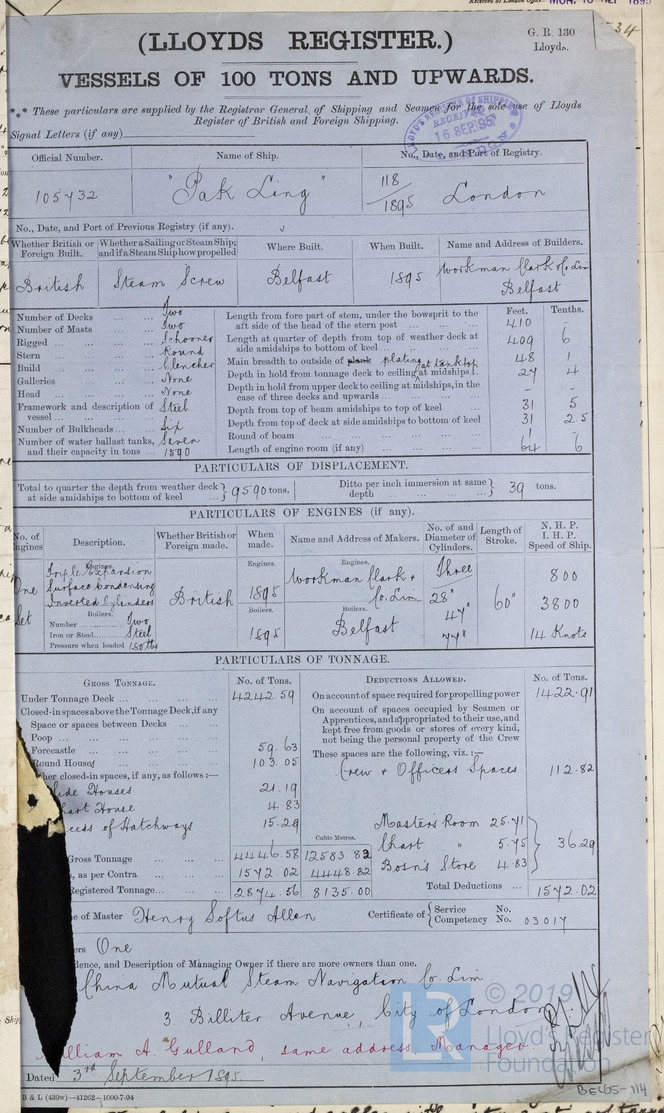 Received at London Office MON. 16 SEP 1895
34
(LLOYDS REGISTER.)
G. R. 130
Lloyds.
VESSELS OF 100 TONS AND UPWARDS.
*** These particulars are supplied by the Registrar General of Shipping and Seamen for the sole use of Lloyds
Register of British and Foreign Shipping.
LLOYD'S REGISTER OF SHIPPING RECEIVED 16 SEP. 95
Signal Letters (if any)
Official Number. Name of Ship. No., Date, and Port of Registry.
105732 "Pak Ling" 118/1895 London
No., Date, and Port of Previous Registry (if any).
Whether British or Foreign Built. Whether a Sailing or Steam Ship; and if a Steam Ship how propelled Where Built. When Built. Name and Address of Builders.
British Steam Screw Belfast 1895 Workman Clark & Co Lim
Belfast
Feet. Tenths.
Number of Decks ... ... Two
Number of Masts ... ... Two
Rigged ... Schooner
Stern ... Round
Build ... Clencher
Galleries ... None
Head ... None
Framework and description of vessel ... Steel
Number of Bulkheads ... Six
Number of water ballast tanks, and their capacity in tons ... Seven 1590
Length from fore part of stem, under the bowsprit to the aft side of the head of the stern post ... 410 -
Length at quarter of depth from top of weather deck at side amidships to bottom of keel ... 409 6
Main breadth to outside of plank plating ... 48 1
Depth in hold from tonnage deck to ceiling at tank top at midships ... 27 4
Depth in hold from upper deck to ceiling at midships, in the case of three decks and upwards ... - -
Depth from top of beam amidships to top of keel ... 31 5
Depth from top of deck at side amidships to bottom of keel 31 25
Round of beam ... 1 -
Length of engine room (if any) ... 64 6
PARTICULARS OF DISPLACEMENT.
Total to quarter the depth from weather deck at side amidships to bottom of keel ... 9590 tons. Ditto per inch immersion at same depth ... 39 tons.
PARTICULARS OF ENGINES (if any).
No. of Engines Description. Whether British or Foreign made. When made. Name and Address of Makers. No. of and Diameter of Cylinders. Length of Stroke. N. H. P. I. H. P. Speed of Ship.
Engines. Engines. Engines.
Triple Expansion Three 800
One Surface Condensing 1895 Workman Clark & Co. Lim 28"
Set Inverted Cylinders British 47" 60" 3800
Boilers. Boilers. Boilers.
Number Two Belfast 77"
Iron or Steel Steel 1895 14 Knots
Pressure when loaded 180 lbs
PARTICULARS OF TONNAGE.
GROSS TONNAGE. No. of Tons. DEDUCTIONS ALLOWED. No. of Tons.
Under Tonnage Deck ... 4242.59 On account of space required for propelling power 1422.91
Closed-in spaces above the Tonnage Deck, if any
Space or spaces between Decks ...
Poop ...
Forecastle ... 59.63
Round Houses ... 103.05
her closed-in spaces, if any, as follows:—
Side Houses 21.19
hart House 4.83
cess of Hatchways 15.29
On account of spaces occupied by Seamen or Apprentices, and appropriated to their use, and kept free from goods or stores of every kind, not being the personal property of the Crew
These spaces are the following, viz.:—
Crew & Officers Spaces 112.82
Masters Room 25.71
Chart " 5.75 36.29
Bosn's Store 4.83
Cubic Metres.
Gross Tonnage ... 4446.58 12583 82
, as per Contra ... 1572.02 4448.82
Registered Tonnage... 2874.56 8135.00
Total Deductions ... 1572.02
e of Master Henry Loftus Allen Certificate of { Service No. Competency No. 03017
ers One
dence, and Description of Managing Owner if there are more owners than one.
China Mutual Steam Navigation Co Lim
3. Billiter Avenue, City of London
William A. Gulland, same address, Manager.
Dated 3rd September 1895.
B & L (439w)—41262—1000-7-94
LR
© 2019
Lloyd's Register
Foundation
BEL65-114